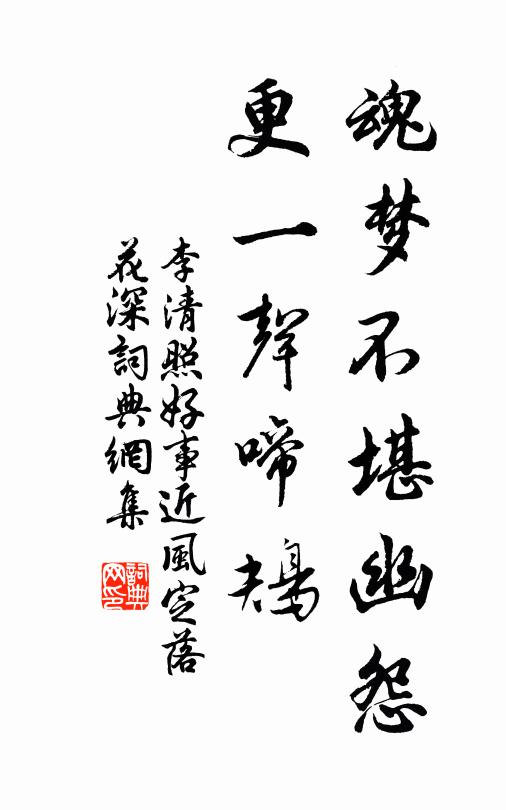 魂梦不堪幽怨
更一聲啼鴂
李清照好事近風定落
花深詞典網集
詞典网印